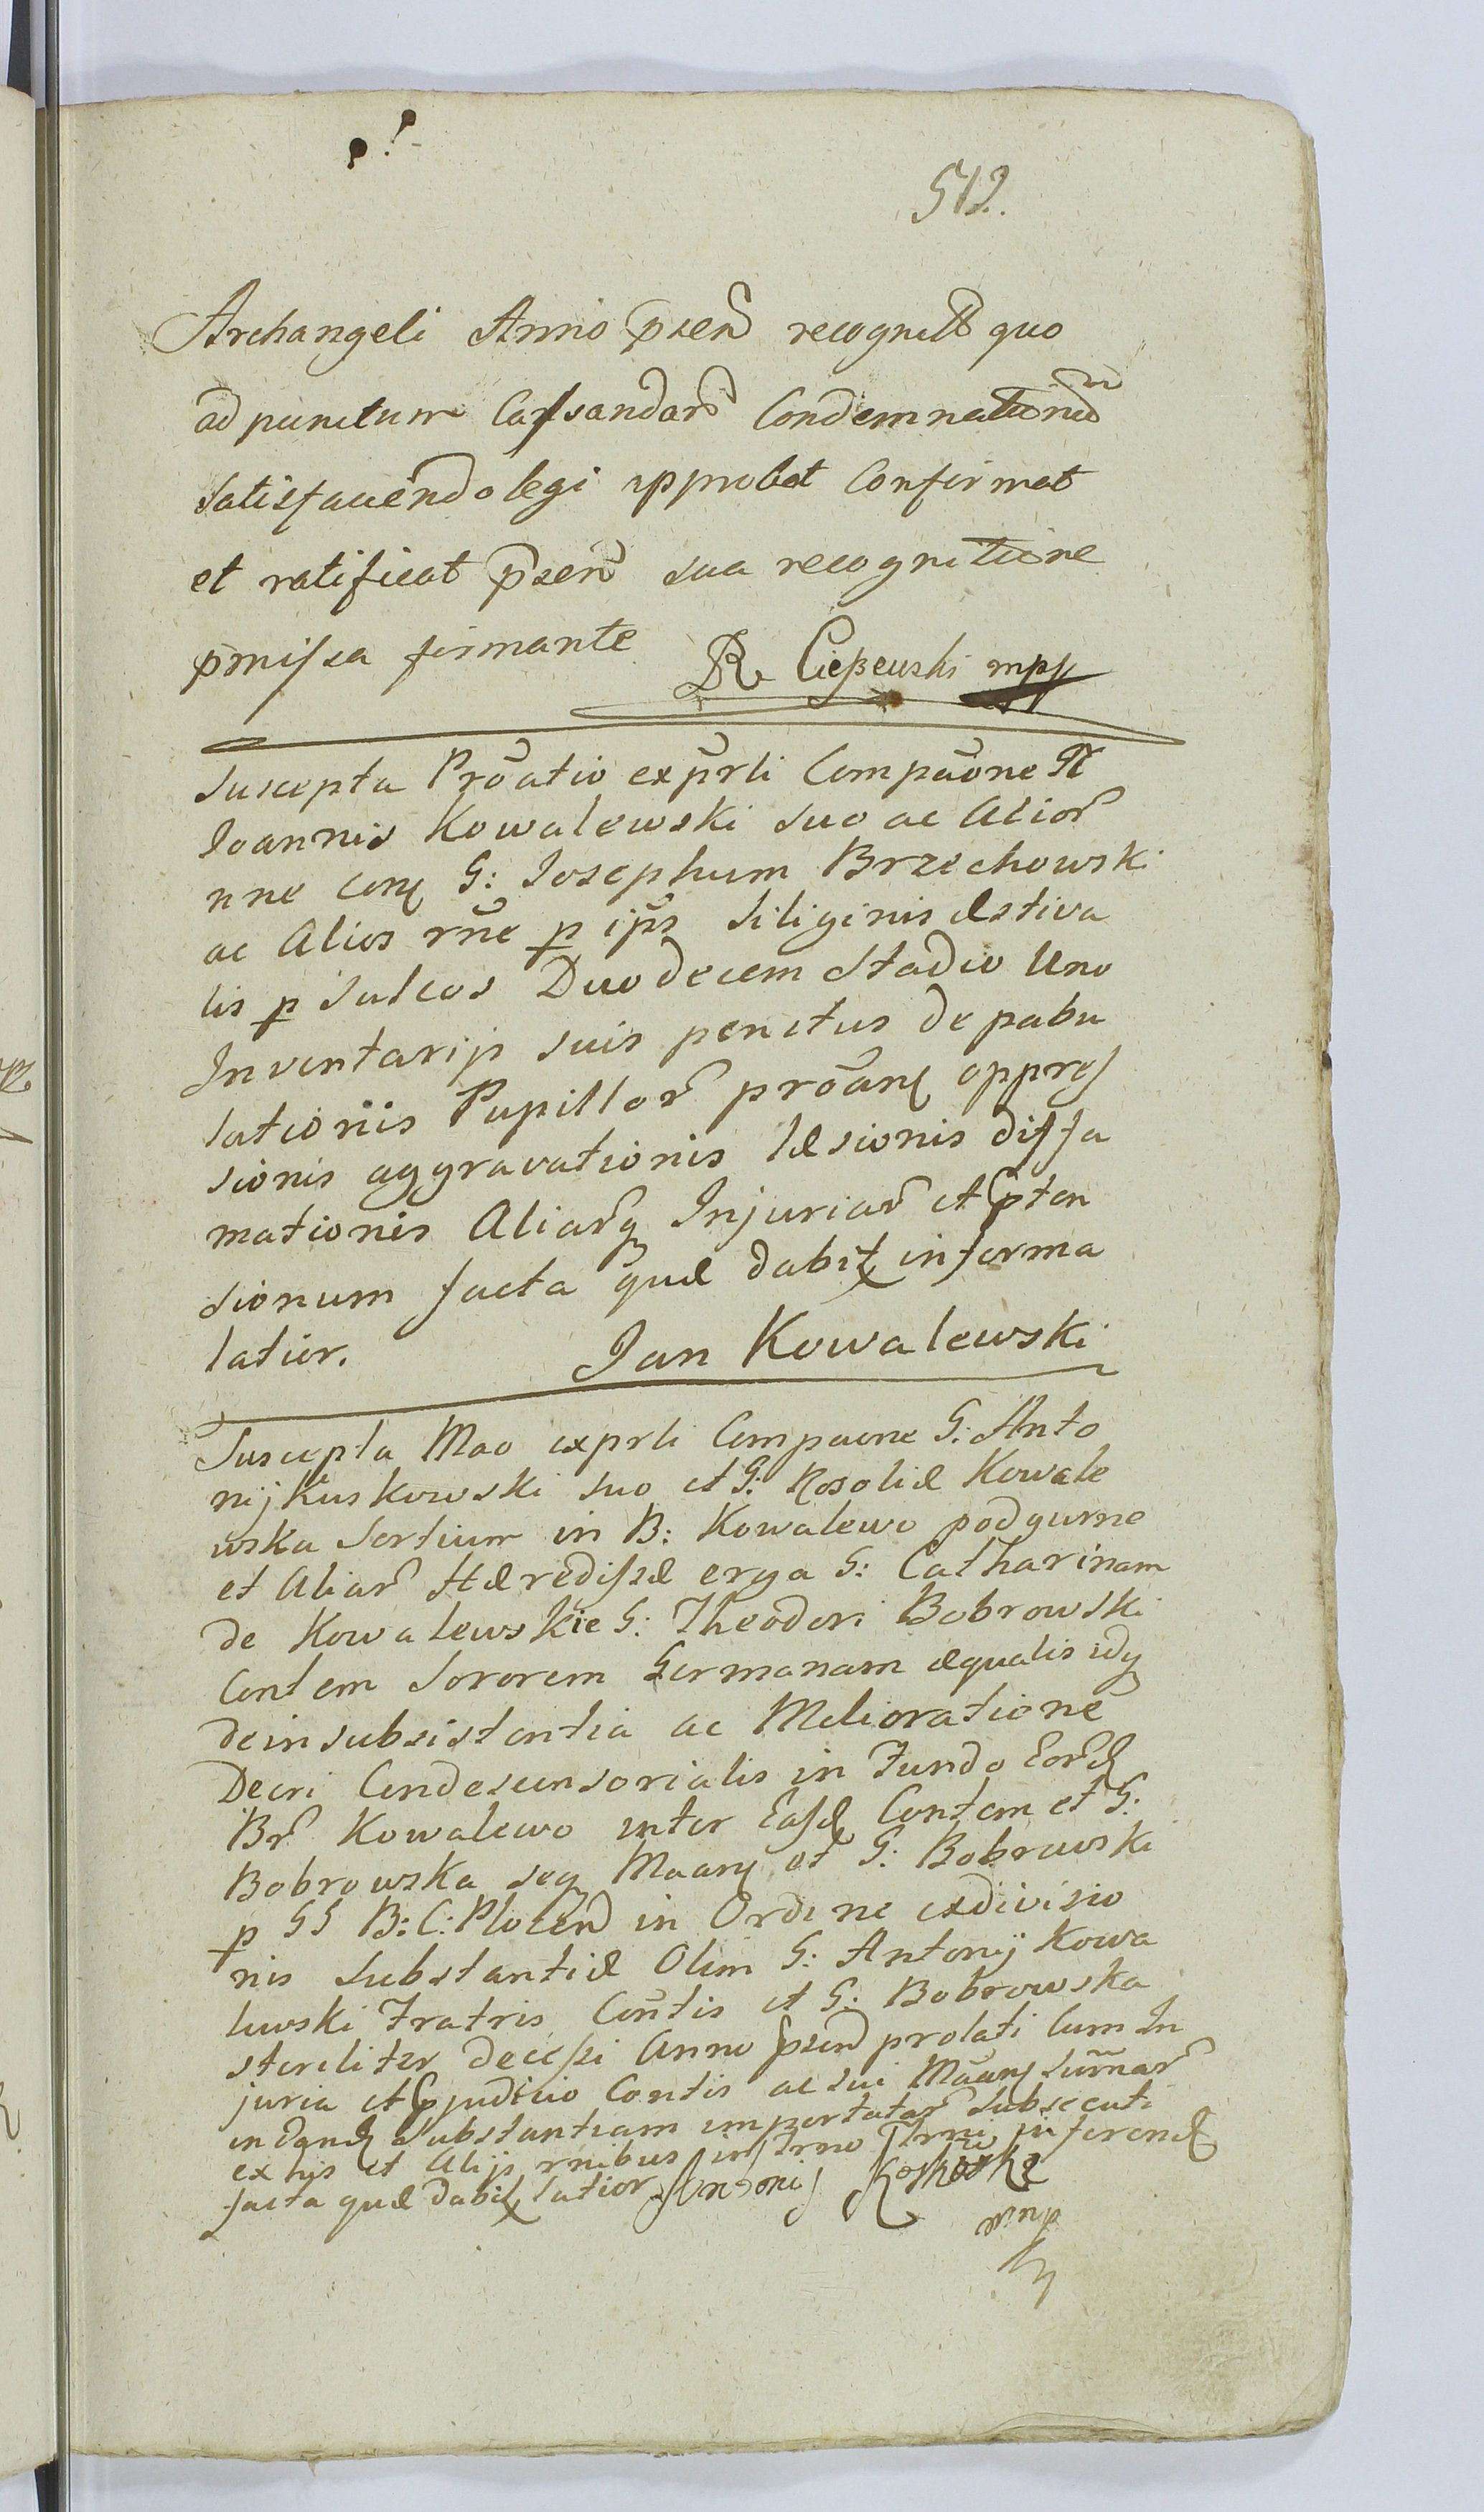 512.
Archangeli Anno p̄sen̄ recognitt̄ quo
ad punctum Cassandar̄ Condemnationū
satisfaciendo legi approbat Confirmat
et ratificat p̄sen̄ sua recognitione
p̄missa firmante R Ciepewski mpp
Suscepta Prōatio exp̄rli Compāone
Ioannis Kowalewski suo ac Alior̄
nne con G: Iosephum Brzechowski
ac Alios rn̄e p ip̄s siliginis æstiva
lis p Sulcos Duodecem Stadio Uno
Inventarijs suis penitus depabu
lationis Pupillor̄ prōan oppres
sionis aggravationis læsionis diffa
mationis Aliar̄q Injuriar̄ et p̄ten
sionum facta quæ dabit informa
latior. Jan Kowalewski
Suscepta Mao exprli Compaone G: Anto
nij Kuskowski suo et G: Rosoliæ Kowale
wska Sortium in B: Kowalewo podgurne
et Aliar̄ Hæredissæ erga G: Catharinam
de Kowalewskie G: Theodori Bobrowski
Contem Sororem Germanam æqualis idq
dein subsistentia ac Melioratione
Decri Condescensorialis in Fundo Eor̄d
Br̄ Kowalewo inter Easd Contem et G:
Bobrowska seq Maan et G: Bobrowski
p GG B: C: Plocen̄ in Ordine exdivisio
nis Substantiæ Olim G: Antonij Kowa
lewski Fratris Con̄tis et G: Bobrowska
steriliter decessi Anno p̄sen̄ prolati Cum In
juria et p̄judicio Contis ac sui Māan Sum̄ar̄
in dand Substantiam importatar̄ subsecuti
ex hijs et Alijs rnibus in Trno Trni inferend
facta quæ dabit latior Antonij